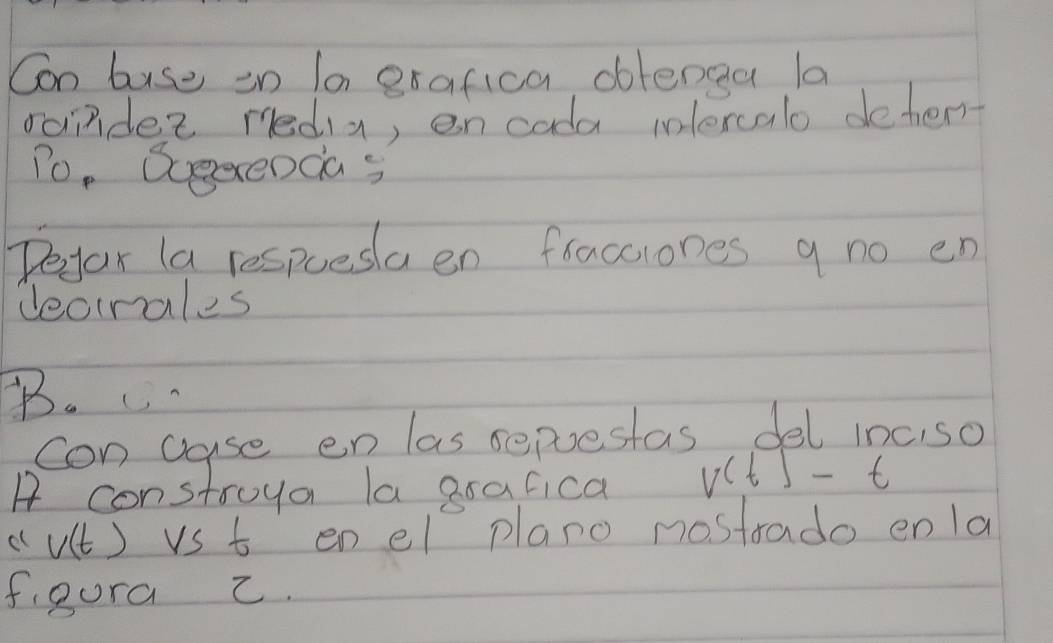 Con base en la grafica obtenga la
rapidez Media, en cada intercalo de tiem-
Po. Sugerencia:
Dejar la respuesta en fracciones y no en
decimales
B.
Con base en las repuestas del inciso
A construya la grafica v(t) - t
"v(t) vs t en el plano mostrado en la
figura 2.